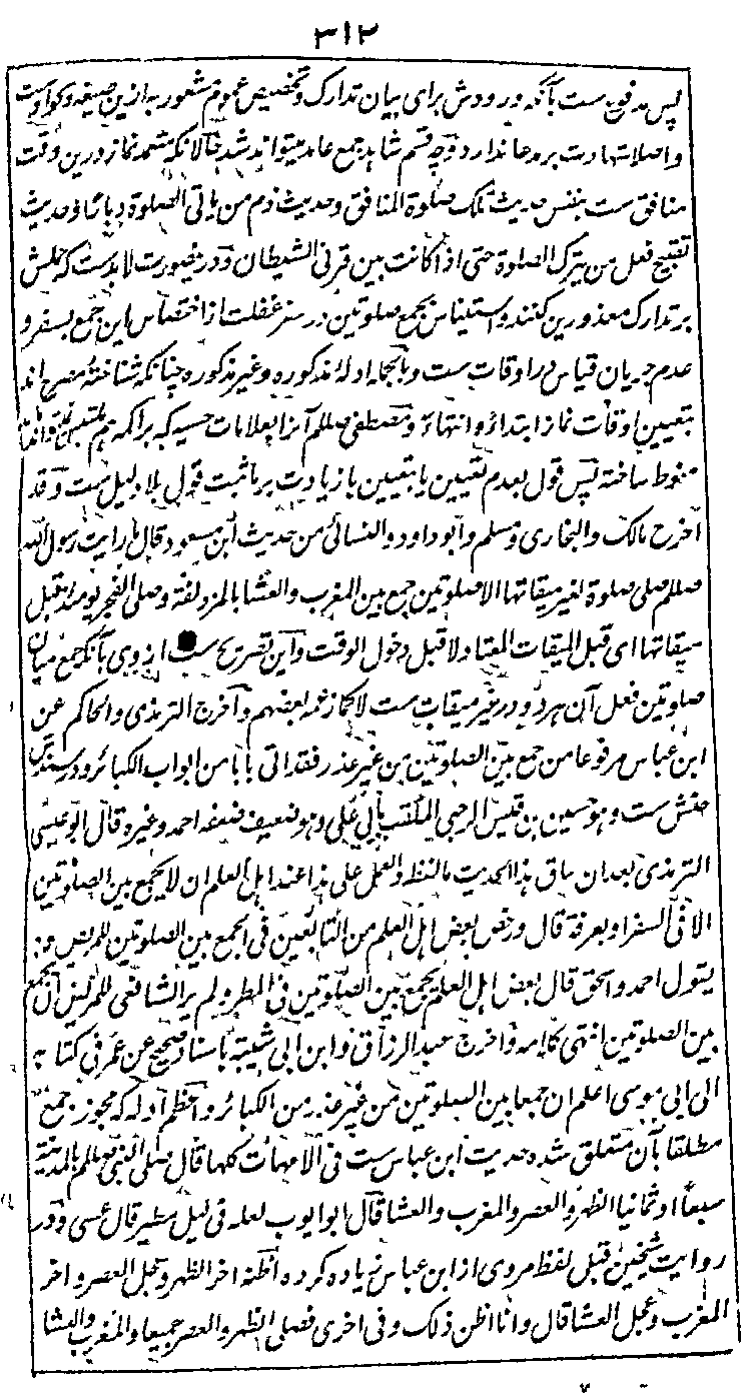 ۳۱۲
پس مدفوع ست بآنکه ورودش برای بیان تدارک و تخصیص عموم مشعور به ازین صیغه
واصلا شهادت بر مدعا ندارد و چه قسم شاهد جمع عامد میتواند شد حالانکه متعمد نماز درین وقت
منافق ست بنفس حدیث تلک صلوة المنافق وحدیث ذم من یاتی الصلوة دبارا وحدیث
تقبیح فعل من یترک الصلوة حتی اذا کانت بین قرنی الشیطان ودرینصورت لابدست که حملش
بر تدارک معذورین کنند واستیناس بجمع صلوتین در سفر غفلت از اختصاص این جمع بسفر و
عدم جریان قیاس در اوقات ست وبالجمله ادلۀ مذکوره وغیر مذکوره چنانکه شناختۀ مصرح اند
بتعیین اوقات نماز ابتداءً وانتهاءً ومصطفی صللم آنرا بعلامات حسیه که برا کمه هم ملتبس
منوط ساخته پس قول بعدم تعیین یا بتعیین با زیادت بر ما ثبت قول بلا دلیل ست وقد
اخرج مالک والبخاری ومسلم وابوداود والنسائی من حدیث ابن مسعود قال ما رایت رسول الله
صللم صلی صلوة لغیر میقاتها الا صلوتین جمع بین المغرب والعشا بالمزدلفة وصلی الفجر یومئذ قبل
میقاتها ای قبل المیقات المعتاد لا قبل دخول الوقت واین تصریح ست ازوی بآنکه جمع میان
صلوتین فعل آن هر دو در غیر میقات ست لا کما زعمه بعضهم واخرج الترمذی والحاکم عن
ابن عباس مرفوعا من جمع بین الصلوتین من غیر عذر فقد اتی بابا من ابواب الکبائر ودر سندش
حنش ست وهو حسین بن قیس الرحبی الملقب بابی علی وهو ضعیف ضعفه احمد وغیره قال ابو عیسی
الترمذی بعد ان ساق هذا الحدیث باللفظ والعمل علی هذا عند اهل العلم ان لا یجمع بین الصلوتین
الا فی السفر او بعرفة قال ورخص بعض اهل العلم من التابعین فی الجمع بین الصلوتین للمریض وبه
یقول احمد واسحق قال بعض اهل العلم یجمع بین الصلوتین فی المطر ولم یر الشافعی للمریض ان یجمع
بین الصلوتین انتهی کلامه واخرج عبد الرزاق وابن ابی شیبة باسناد صحیح عن عمر فی کتابه
الی ابی موسی اعلم ان جمعا بین الصلوتین من غیر عذر من الکبائر واعظم ادله که مجوز جمع
مطلقا بآن متعلق شده حدیث ابن عباس ست فی الامهات کلها قال صلی النبی صللم بالمدینة
سبعا وثمانیا الظهر والعصر والمغرب والعشا قال ابو ایوب لعله فی لیل مطیر قال عسی ودر
روایت شیخین قبل لفظ مروی از ابن عباس زیاده کرده اظنه اخر الظهر وعجل العصر واخر
المغرب وعجل العشا قال وانا اظن ذلک وفی اخری فصلی الظهر والعصر جمیعا والمغرب والعشا